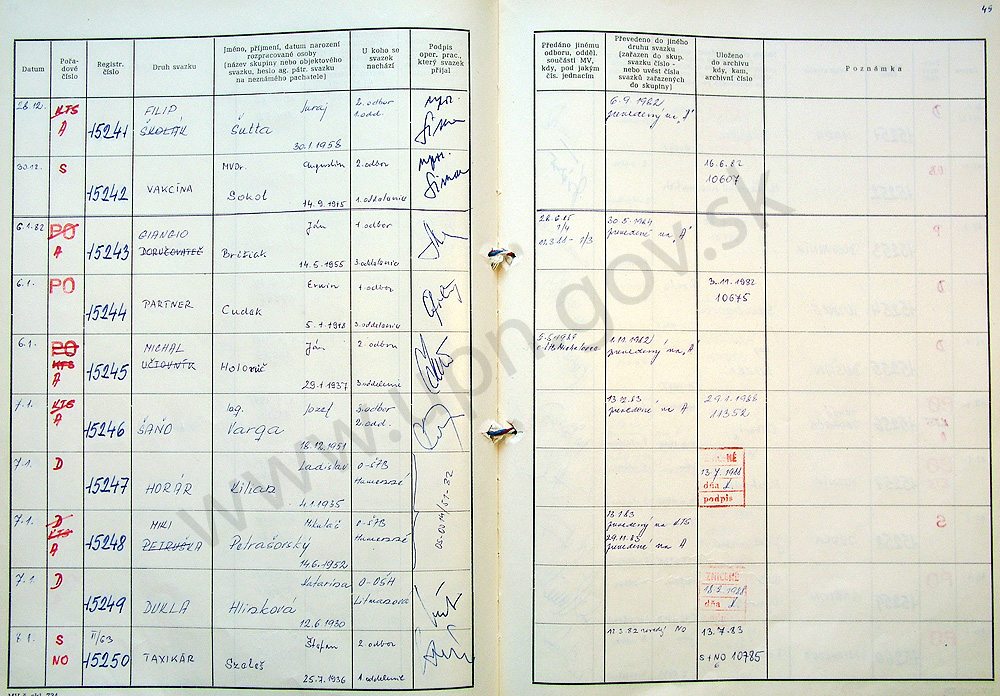 49
Datum
Pořa-
dové
číslo
Registr.
číslo
Druh svazku
Jméno, příjmení, datum narození
rozpracované osoby
(název skupiny nebo objektového
svazku, heslo ag. pátr. svazku
na neznámého pachatele)
U koho se
svazek
nachází
Podpis
oper. prac.,
který svazek
přijal
Předáno jinému
odboru, odděl.
součásti MV,
kdy, pod jakým
čís. jednacím
Převedeno do jiného
druhu svazku
(zařazen do skup.
svazku číslo -
nebo uvést čísla
svazků zařazených
do skupiny)
Uloženo
do archivu
kdy, kam,
archivní číslo
Poznámka
28.12. KTS A 15241 FILIP ŠKOLÁK Juraj Šutta 30.1.1958 2. odbor 1. odd. 6.9.1982 prevedený na „A"
30.12. S 15242 VAKCÍNA MVDr. Augustín Sokol 14.9.1915 2. odbor 1. oddelenie 16.6.82 10607
6.1.82 PO A 15243 GIANGIO DORUČOVATEĽ Ján Brižiak 14.5.1955 1. odbor 3. oddelenie 30.5.1984 prevedené na „A"
6.1. PO 15244 PARTNER Erwin Cudek 5.1.1918 1. odbor 3. oddelenie 3.11.1982 10675
6.1. PO KTS A 15245 MICHAL ÚČTOVNÍK Ján 29.1.1937 2. odbor 3. oddelenie 1.10.1982 prevedený na „A"
7.1. KTS A 15246 ŠAŇO Ing. Jozef Varga 18.12.1951 3. odbor 2. odd. 13.12.83 prevedené na A 29.1.1986 11352
7.1. D 15247 HORÁR Ladislav Kilian 4.1.1935 O-ŠTB Humenné 13.7.1988
dňa
podpis
7.1. D KTS A 15248 MIKI PETRUŠKA Mikuláš Petrašovský 14.6.1952 O-ŠTB Humenné 13.1.83 prevedený na KTS
29.11.83 prevedené na A
7.1. D 15249 DUKLA Katarína Hlinková 12.6.1930 ZNIČENÉ
dňa
7.1. S NO II/63 15250 TAXIKÁR Štefan Szaleš 25.7.1936 2. odbor 1. oddelenie 13.7.83
S+NO 10785
www.upn.gov.sk